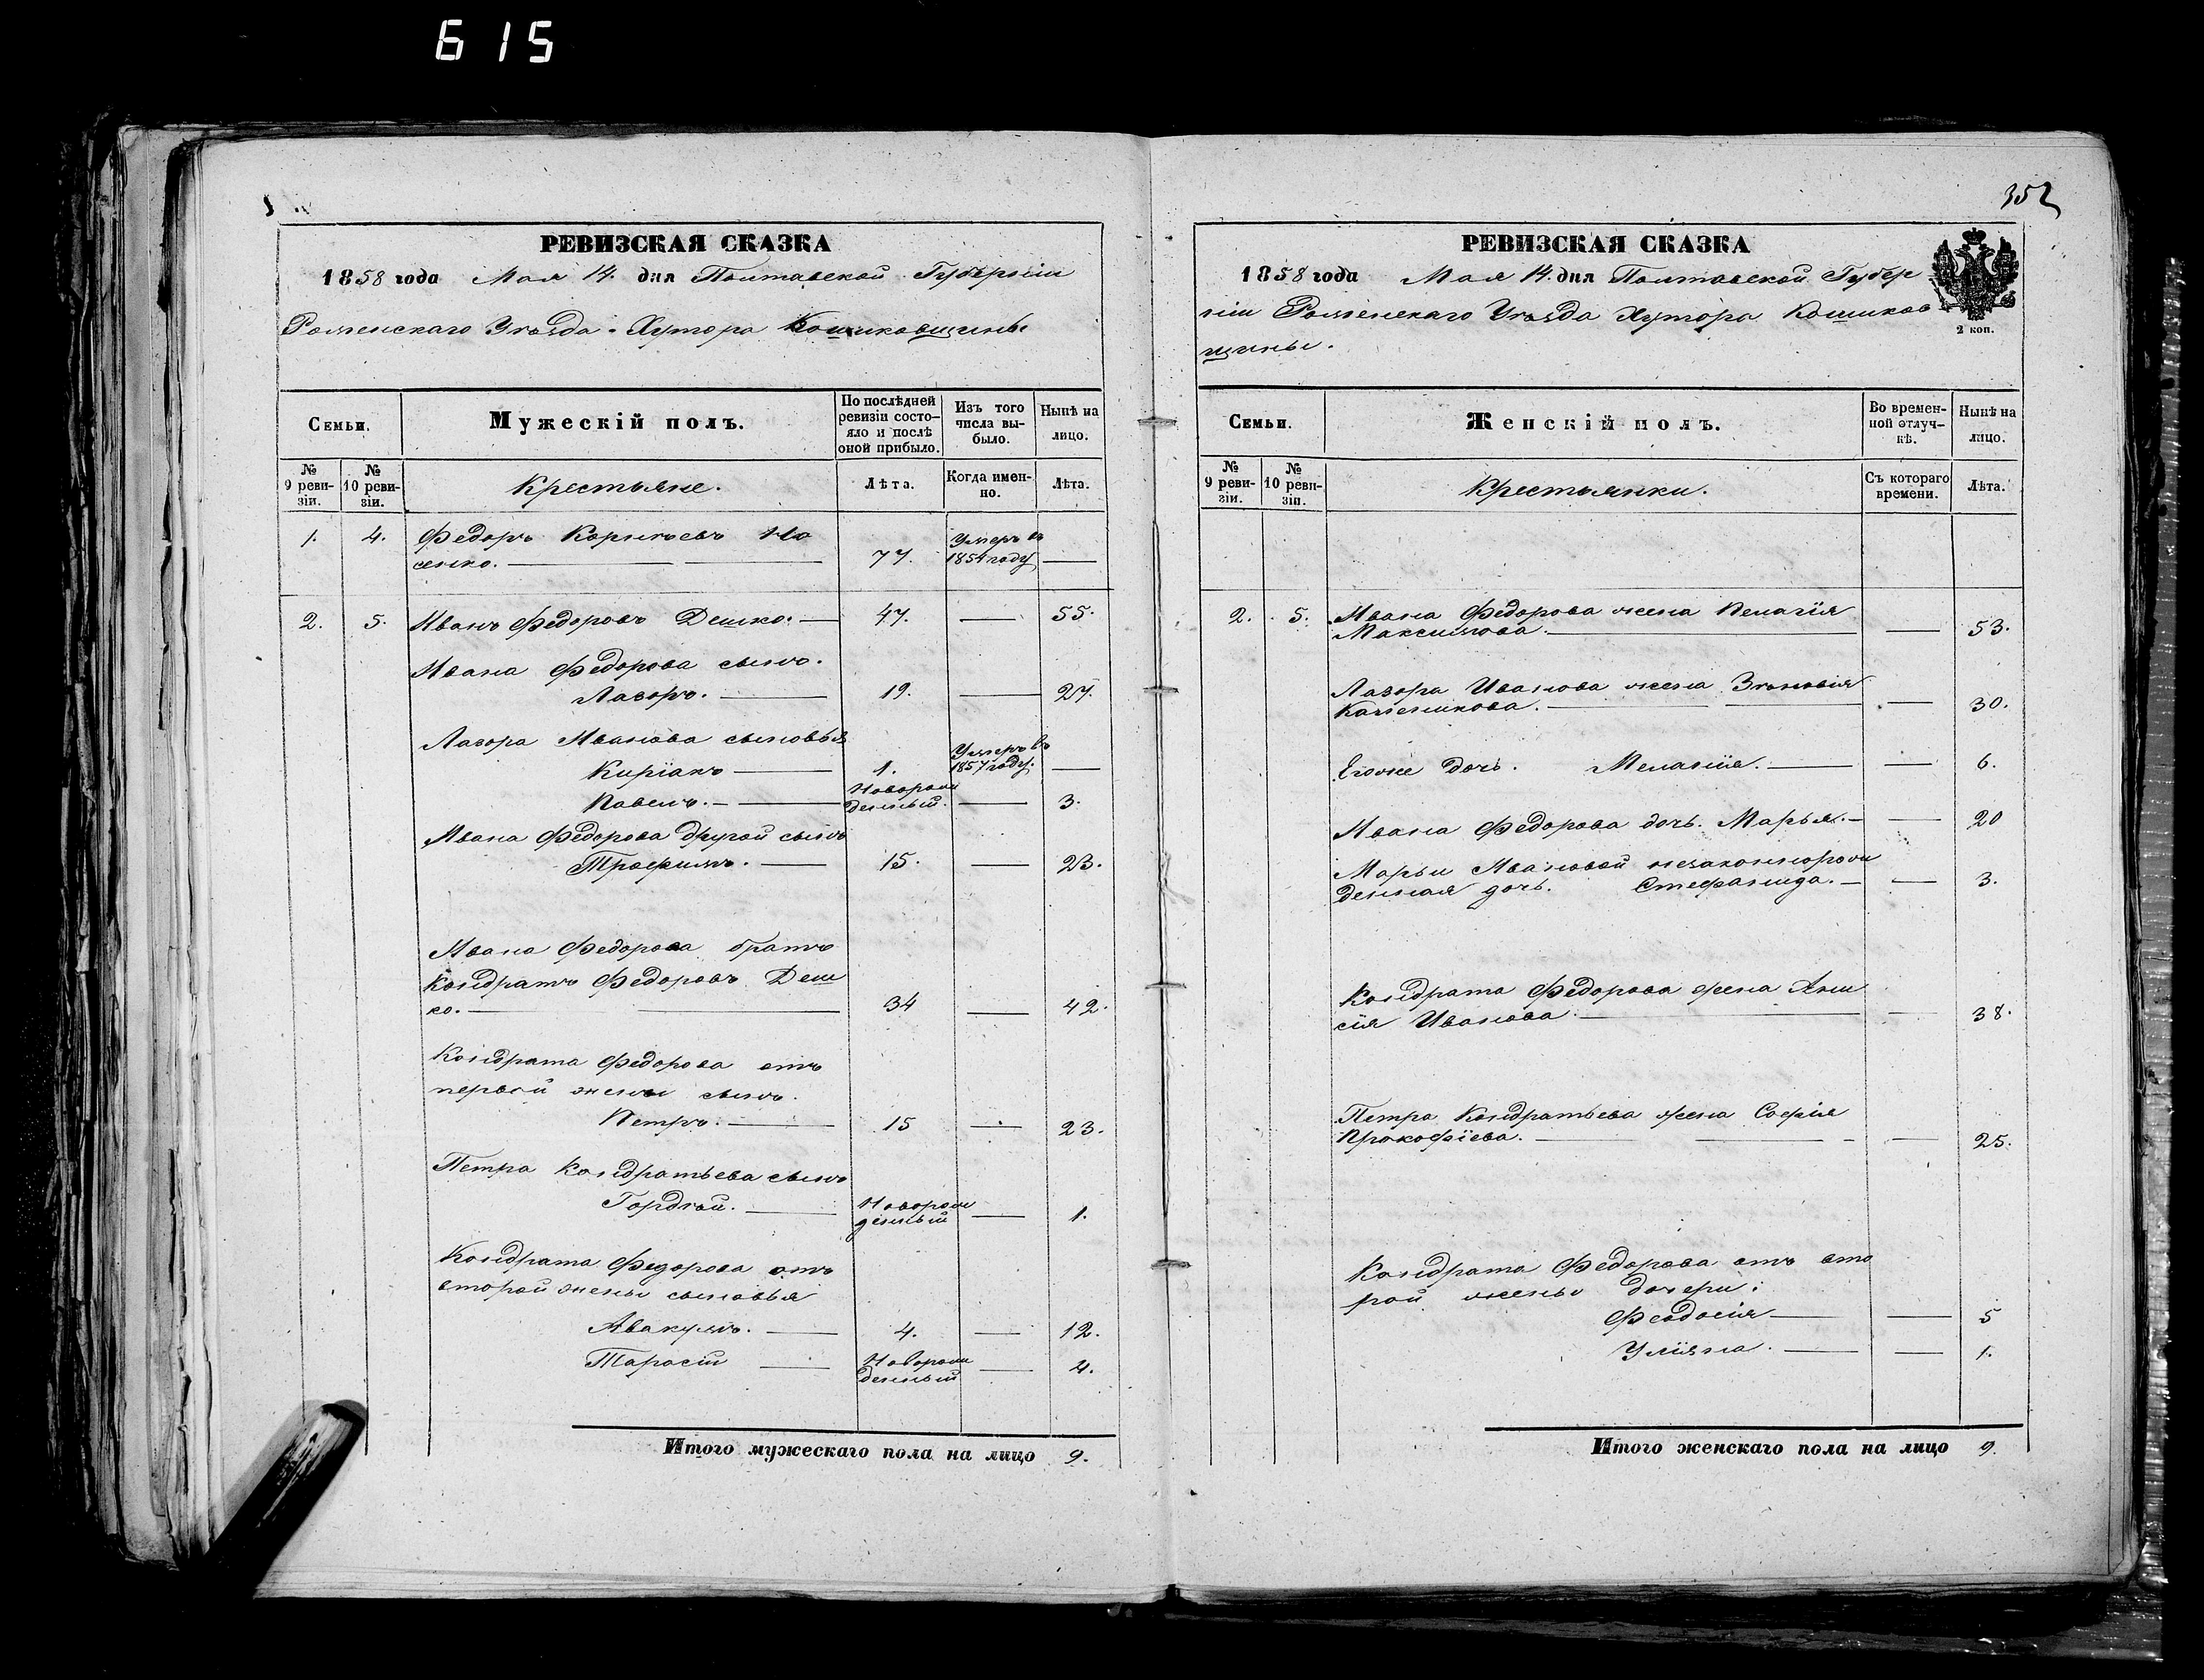 615
352
РЕВИЗСКАЯ СКАЗКА
1858 года Мая 14. дня Полтавской Губерніи
Роменскаго Уѣзда. Хутора Кошиковщины.
Семьи.
Мужескій полъ.
По послѣдней ревизіи состо-
яло и послѣ оной прибыло.
Изъ того числа вы-
было.
Нынѣ на лицо.
№ 9 реви-
зіи.
№ 10 реви-
зіи.
Крестьяне.
Лѣта.
Когда имен-
но.
Лѣта.
1. 4. Федоръ Корнѣевъ
77. Умеръ въ 1854 году —
2. 5. Иванъ Федоровъ Дешко. — 47. — 55.
Ивана Федорова сынъ.
Лазоръ. — 19. — 27.
Лазора Иванова сыновья
Киріакъ — 1. Умеръ въ 1857 году. —
Павелъ. — Новорож
денный. — 3.
Ивана Федорова другой сынъ
Трофимъ. — 15. — 23.
Ивана Федорова братъ
Кондратъ Федоровъ Деш
ко. — 34 — 42.
Кондрата Федорова отъ
первой жены сынъ.
Петръ. — 15 — 23.
Петра Кондратьева сынъ
Гордѣй. — Новорож
денный — 1.
Кондрата Федорова отъ
второй жены сыновья
Авакумъ. — 4. — 12.
Тарасій — Новорож
денный — 4.
Итого мужескаго пола на лицо 9.
РЕВИЗСКАЯ СКАЗКА
1858 года Мая 14. дня Полтавской Губер
ніи Роменскаго Уѣзда Хутора Кошиков
щины.
2 коп.
Семьи.
Женскій полъ.
Во времен-
ной отлуч-
кѣ.
Нынѣ на лицо.
№ 9 реви-
зіи.
№ 10 реви-
зіи.
Крестьянки.
Съ котораго времени.
Лѣта.
2. 5. Ивана Федорова жена Пелагія
Максимова. — — 53.
Лазора Иванова жена Зѣновія
Каленикова. — — 30.
Егоже дочь. Меланія. — — 6.
Ивана Федорова дочь. Марья. — — 20
Марьи Ивановой незаконнорож
денная дочь. Стефанида. — — 3.
Кондрата Федорова жена Ани
сія Иванова. — — 38.
Петра Кондратьева жена Софія
Прокофіева. — — 25.
Кондрата Федорова отъ вто
рой жены дочери:
Феодосія — — 5
Уліяна. — — 1.
Итого женскаго пола на лицо 9.